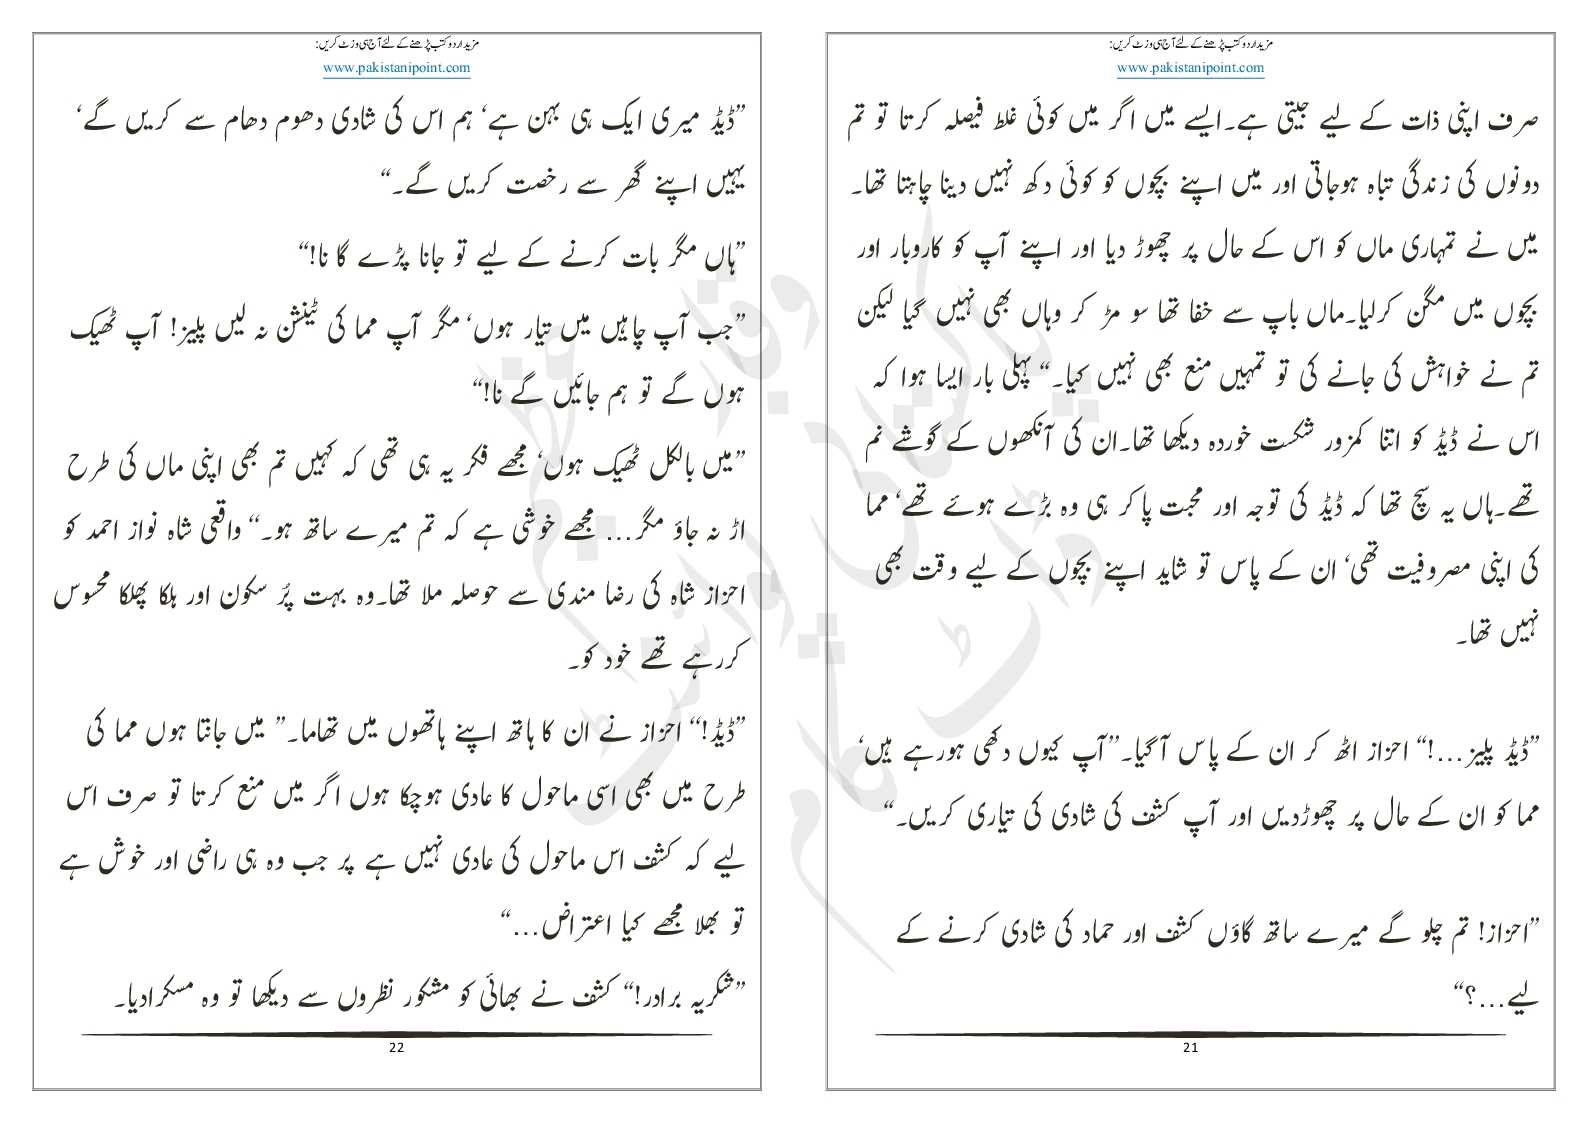 مزید اردو کتب پڑھنے کے لئے آج ہی وزٹ کریں:
www.pakistanipoint.com
صرف اپنی ذات کے لیے جیتی ہے۔ایسے میں اگر میں کوئی غلط فیصلہ کرتا تو تم
دونوں کی زندگی تباہ ہوجاتی اور میں اپنے بچوں کو کوئی دکھ نہیں دینا چاہتا تھا۔
میں نے تمہاری ماں کو اس کے حال پر چھوڑ دیا اور اپنے آپ کو کاروبار اور
بچوں میں مگن کرلیا۔ماں باپ سے خفا تھا سو مڑ کر وہاں بھی نہیں گیا لیکن
تم نے خواہش کی جانے کی تو تمہیں منع بھی نہیں کیا۔“ پہلی بار ایسا ہوا کہ
اس نے ڈیڈ کو اتنا کمزور شکست خوردہ دیکھا تھا۔ان کی آنکھوں کے گوشے نم
تھے۔ہاں یہ سچ تھا کہ ڈیڈ کی توجہ اور محبت پاکر ہی وہ بڑے ہوئے تھے‘ مما
کی اپنی مصروفیت تھی‘ ان کے پاس تو شاید اپنے بچوں کے لیے وقت بھی
نہیں تھا۔
”ڈیڈ پلیز...!“ احزاز اٹھ کر ان کے پاس آگیا۔”آپ کیوں دکھی ہورہے ہیں‘
مما کو ان کے حال پر چھوڑدیں اور آپ کشف کی شادی کی تیاری کریں۔“
”احزاز! تم چلو گے میرے ساتھ گاؤں کشف اور حماد کی شادی کرنے کے
لیے...؟“
21
مزید اردو کتب پڑھنے کے لئے آج ہی وزٹ کریں:
www.pakistanipoint.com
”ڈیڈ میری ایک ہی بہن ہے‘ ہم اس کی شادی دھوم دھام سے کریں گے‘
یہیں اپنے گھر سے رخصت کریں گے۔“
”ہاں مگر بات کرنے کے لیے تو جانا پڑے گا نا!“
”جب آپ چاہیں میں تیار ہوں‘ مگر آپ مما کی ٹینشن نہ لیں پلیز! آپ ٹھیک
ہوں گے تو ہم جائیں گے نا!“
”میں بالکل ٹھیک ہوں‘ مجھے فکر یہ ہی تھی کہ کہیں تم بھی اپنی ماں کی طرح
اڑ نہ جاؤ مگر... مجھے خوشی ہے کہ تم میرے ساتھ ہو۔“ واقعی شاہ نواز احمد کو
احزاز شاہ کی رضا مندی سے حوصلہ ملا تھا۔وہ بہت پرُ سکون اور ہلکا پھلکا محسوس
کررہے تھے خود کو۔
”ڈیڈ!“ احزاز نے ان کا ہاتھ اپنے ہاتھوں میں تھاما۔” میں جانتا ہوں مما کی
طرح میں بھی اسی ماحول کا عادی ہوچکا ہوں اگر میں منع کرتا تو صرف اس
لیے کہ کشف اس ماحول کی عادی نہیں ہے پر جب وہ ہی راضی اور خوش ہے
تو بھلا مجھے کیا اعتراض...“
”شکریہ برادر!“ کشف نے بھائی کو مشکور نظروں سے دیکھا تو وہ مسکرادیا۔
22